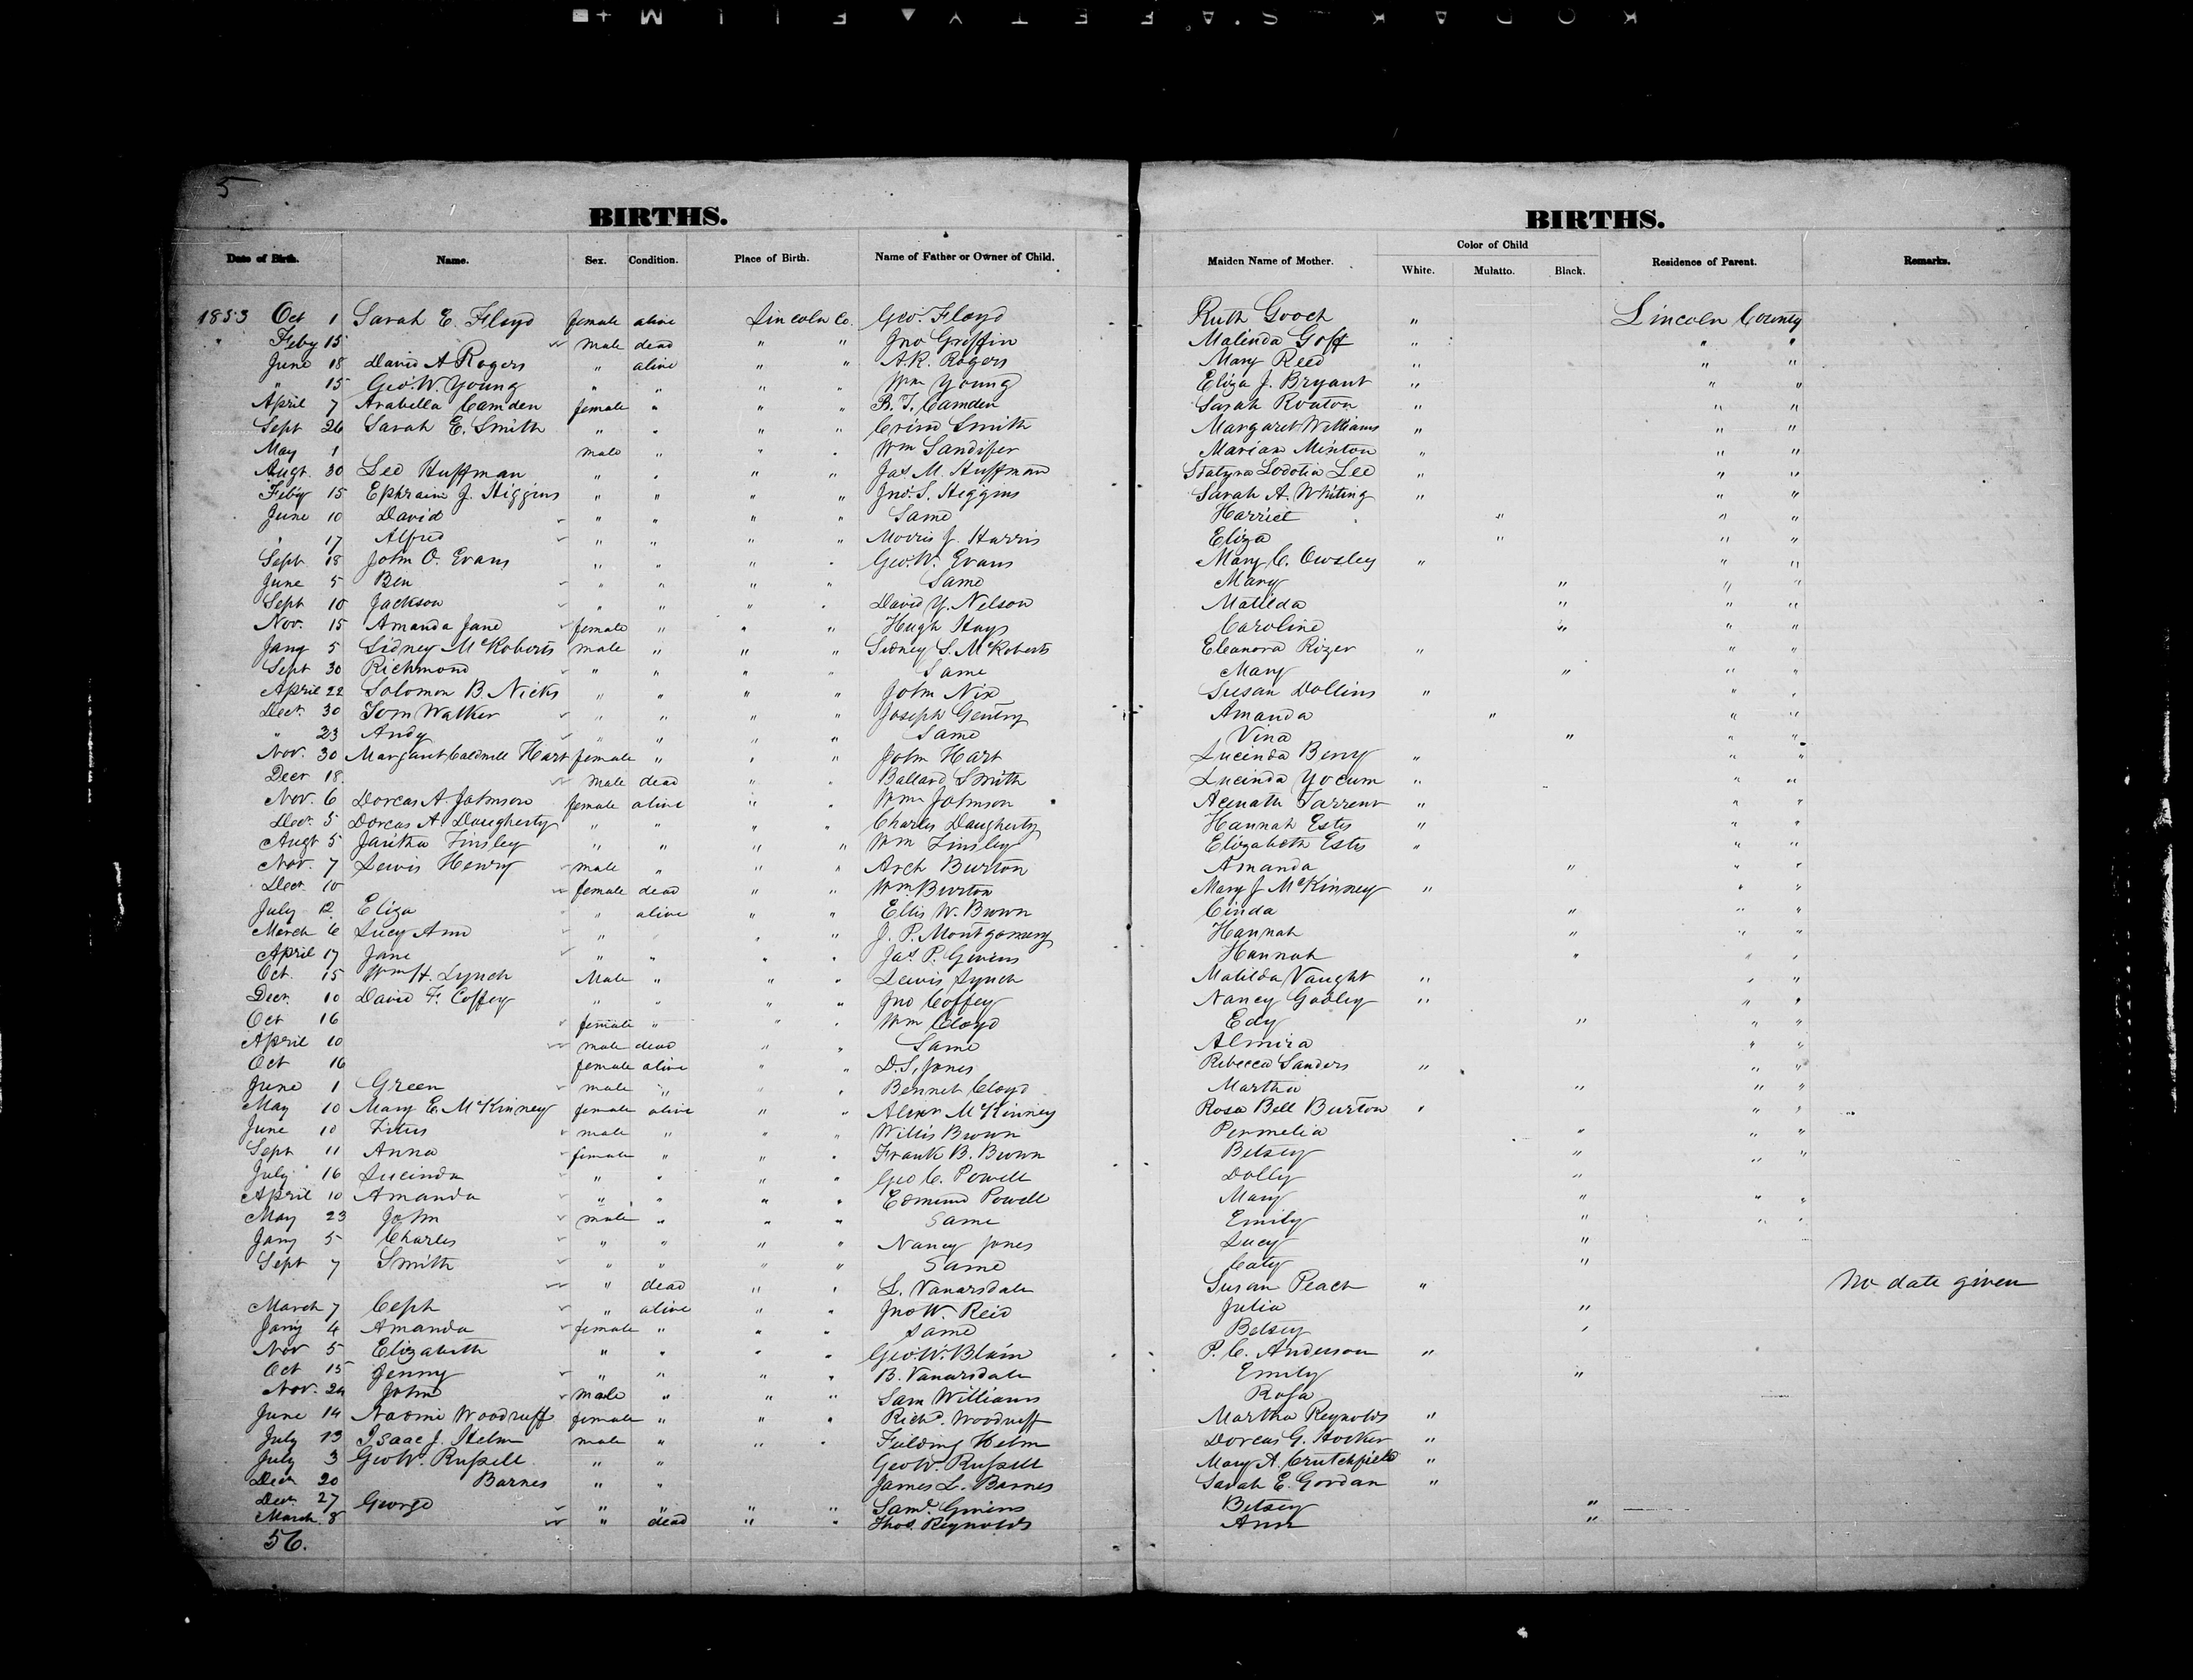 KODAK S.A.F.E.T.Y ▲ F I L M
5
BIRTHS.
BIRTHS.
Date of Birth. Name. Sex. Condition. Place of Birth. Name of Father or Owner of Child. Maiden Name of Mother. Color of Child White. Mulatto. Black. Residence of Parent. Remarks.
1853 Oct 1 Sarah E. Floyd female alive Lincoln Co. Geo. Floyd Ruth Gooch " Lincoln County
" Feby 15 male dead " " Jno Griffin Malinda Goff " " "
June 18 David A Rogers " alive " " A.R. Rogers Mary Reed " " "
" 15 Geo. W. Young " " " " Wm Young Eliza J. Bryant " " "
April 7 Arabella Camden female " " " B. T. Camden Sarah Routon " " "
Sept 26 Sarah E. Smith " " " " Crim Smith Margaret Williams " " "
May 1 male " " " Wm Sandifer Marian Minton " " "
Augt. 30 Lee Huffman " " " " Jas M. Huffman Statyra Lodotia Lee " " "
Feby 15 Ephraim J. Higgins " " " " Jno. S. Higgins Sarah A. Whiting " " "
June 10 David " " " " Same Harriet " " "
" 17 Alfred " " " " Morris J. Harris Eliza " " "
Sept 18 John O. Evans " " " " Geo. W. Evans Mary C. Owsley " " "
June 5 Ben " " " " Same Mary " " "
Sept 10 Jackson " " " " David Y. Nelson Matilda " " "
Nov. 15 Amanda Jane female " " " Hugh Hays Caroline " " "
Jany 5 Sidney McRoberts male " " " Sidney S. McRoberts Eleanora Rizer " " "
Sept 30 Richmond " " " " Same Mary " " "
April 22 Solomon B. Nicks " " " " John Nix Susan Dollins " " "
Decr. 30 Tom Walker " " " " Joseph Gentry Amanda " " "
" 23 Andy " " " " Same Vina " " "
Nov. 30 Margaret Caldwell Hart female " " " John Hart Lucinda Berry " " "
Decr 18 male dead " " Ballard Smith Lucinda Yocum " " "
Nov. 6 Dorcas A. Johnson female alive " " Wm Johnson Acenath Tarrent " " "
Decr. 5 Dorcas A. Daugherty " " " " Charles Daugherty Hannah Estes " " "
Augt 5 Jaritha Tinsley " " " " Wm Tinsley Elizabeth Estes " " "
Nov. 7 Lewis Henry male " " " Arch Burton Amanda " " "
Decr. 10 female dead " " Wm Burton Mary J McKinney " " "
July 12 Eliza " alive " " Ellis W. Brown Cinda " " "
March 6 Lucy Ann " " " J. P. Montgomery Hannah " " "
April 17 Jane " " " " Jas. P. Givens Hannah " " "
Oct. 15 Wm H. Lynch Male " " " Lewis Lynch Matilda Vaught " " "
Decr. 10 David F. Coffey " " " " Jno Coffey Nancy Gadley " " "
Oct 16 female " " " Wm Cloyd Edy " " "
April 10 male dead " " Same Almira " "
Oct 16 female alive " " D. S. Jones Rebecca Sanders " " "
June 1 Green male " " " Bennet Cloyd Martha " " "
May 10 Mary E. McKinney female alive " " Alexr McKinney Rosa Bell Burton " " "
June 10 Titus male " " " Willis Brown Permelia " " "
Sept 11 Anna female " " " Frank B. Brown Betsey " " "
July 16 Lucinda " " " " Geo C. Powell Dolly "
April 10 Amanda " " " " Edmund Powell Mary " " "
May 23 John male " " " Same Emily " " "
Jany 5 Charles " " " " Nancy Jones Lucy "
Sept 7 Smith " " " " Same Caty "
" dead " " L. Vanarsdale Susan Peach " No date given
March 7 Ceph " alive " " Jno W. Reid Julia "
Jany 4 Amanda female " " " Same Betsey "
Nov 5 Elizabeth " " " " Geo. W. Blain P. C. Anderson "
Oct 15 Jenny " " " " B. Vanarsdale Emily "
Nov. 24 John male " " " Sam Williams Rosa
June 14 Naomi Woodruff female " " " Richd. Woodruff Martha Reynolds "
July 13 Isaac J. Helm male " " " Fielding Helm Dorcas G. Hocker "
July 3 Geo W. Russell " " Geo W. Russell Mary A. Crutchfield "
Decr 20 Barnes " " James L. Barnes Sarah E. Gordan "
Decr. 27 George " " " " Saml. Givens Betsey "
March 8 " dead " " Thos. Reynolds Ann "
56.